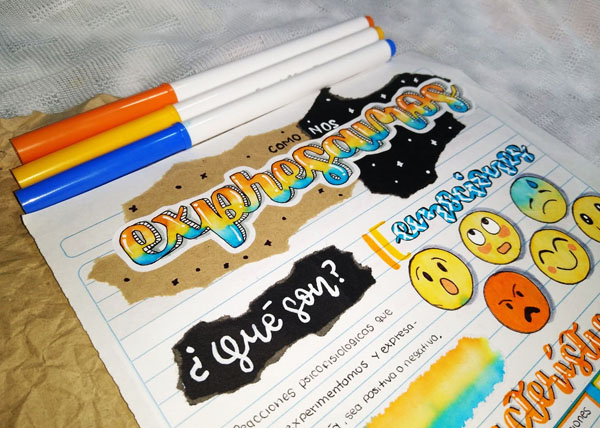 COMO NOS
expresamos
emociones
¿Qué son?
Reacciones psicofisiologicas que
experimentamos y expresa-
, sea positiva o negativa.